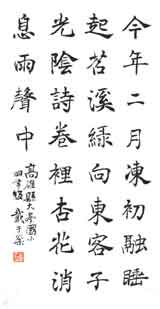 今年二月凍初融睡
起苕溪綠向東客子
光陰詩卷裡杏花消
息雨聲中
高雄縣大國小
四年級 戴于